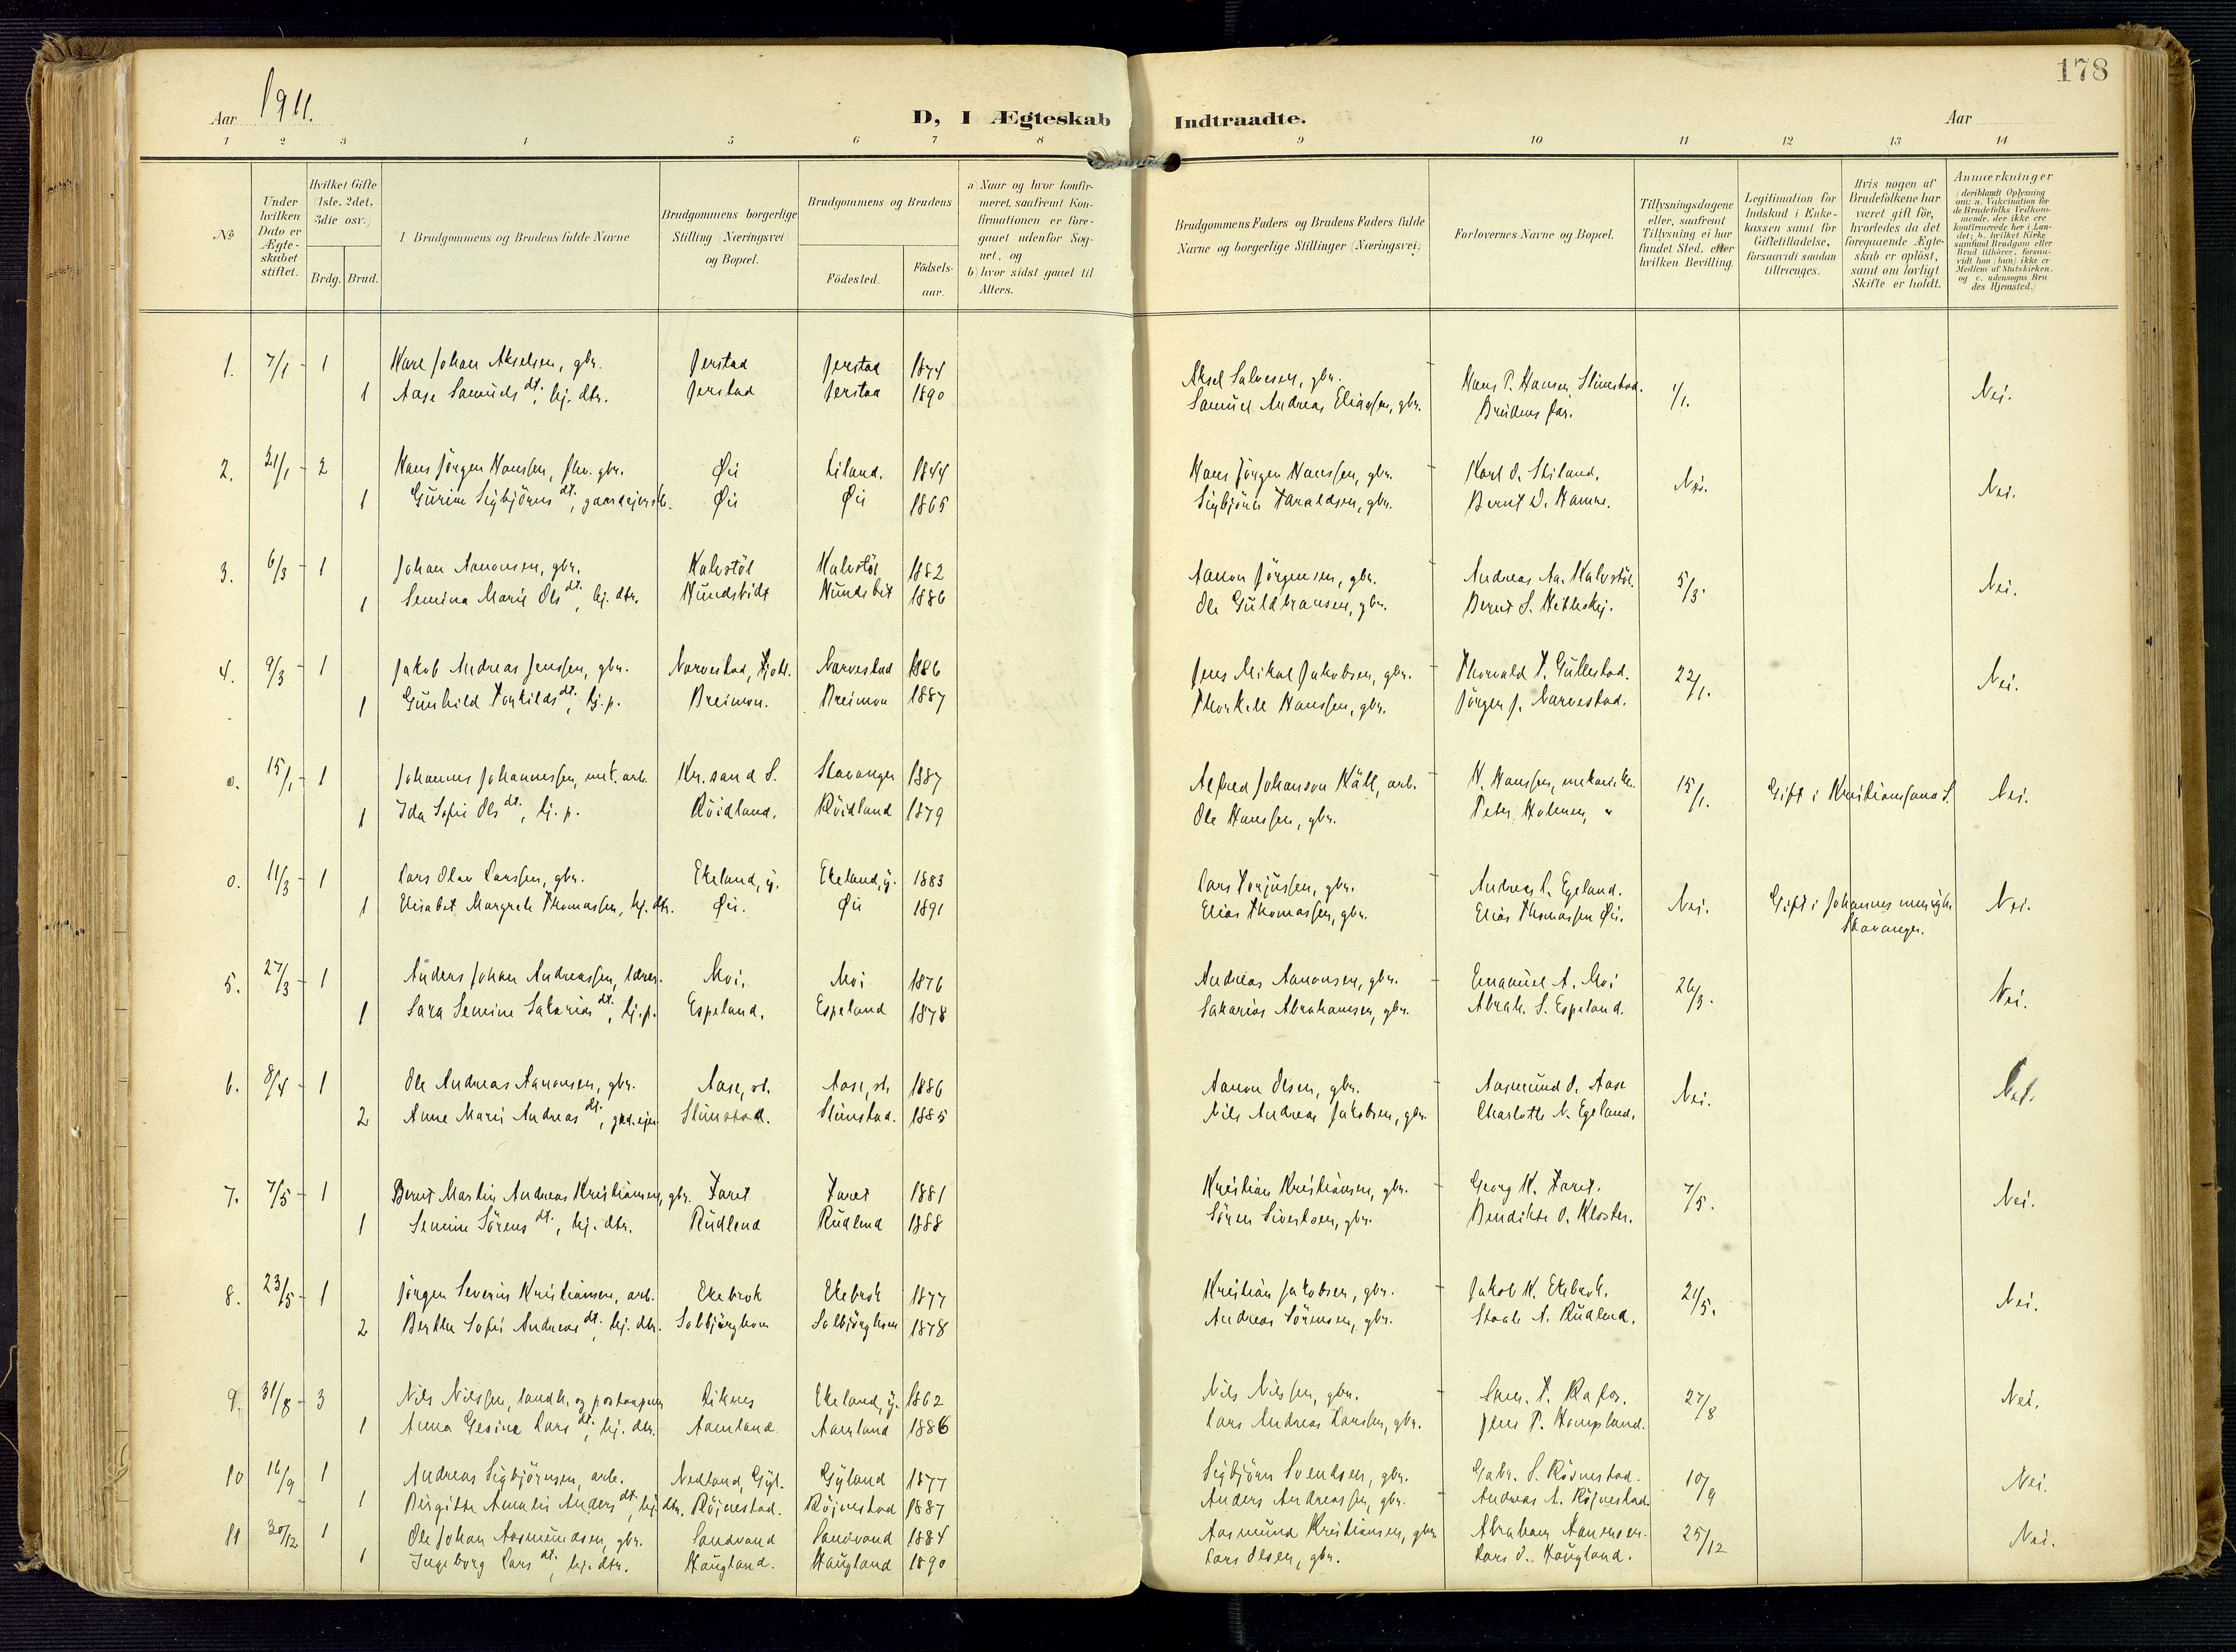 178
Aar 1911.
D, I Ægteskab Indtraadte.
Aar
1 2 3 4 5 6 7 8 9 10 11 12 13 14
No
Under hvilken Dato er Ægteskabet stiftet.
Hvilket Gifte (1ste, 2det, 3die osv.)
Brdg. Brud.
Brudgommens og Brudens fulde Navne
Brudgommens borgerlige Stilling (Næringsvei) og Bopæl.
Brudgommens og Brudens
Födested.
Födselsaar.
a) Naar og hvor konfirmeret, saafremt Konfirmationen er foregaaet udenfor Sognet, og
b) hvor sidst gaaet til Alters.
Brudgommens Faders og Brudens Faders fulde Navne og borgerlige Stillinger (Næringsvei)
Forlovernes Navne og Bopæl.
Tillysningsdagene eller, saafremt Tillysning ei har fundet Sted, efter hvilken Bevilling.
Legitimation for Indskud i Enkekassen samt for Giftetilladelse, forsaavidt saadan tiltrænges.
Hvis nogen af Brudefolkene har været gift för, hvorledes da det foregaaende Ægteskab er oplöst, samt om lovligt Skifte er holdt.
Anmærkninger (deriblandt Oplysning om: a. Vakcination for de Brudefolks Vedkommende, der ikke ere konfirmerede her i Landet; b. hvilket Kirkesamfund Brudgom eller Brud tilhörer, forsaavidt han (hun) ikke er Medlem af Statskirken, og c. udensogns Brudes Hjemsted.)
1. 7/1 - 1 Karl Johan Akselsen, gbr. Jerstad Jerstad 1874 Aksel Salvesen, gbr. - Hans P. Hansen Slimstad. 1/1. Nei.
1 Aase Samuels dt., hj. dtr. Jerstad Jerstad 1890 Samuel Andreas Eliassen, gbr. Brudens far.
2. 21/1 - 2 Hans Jörgen Hanssen, fhv. gbr. Öie Liland. 1844 Hans Jörgen Hanssen, gbr. - Karl O. Stiland. Nei. Nei.
1 Gurine Sigbjörns dt., gaardejersk. Öie Öie 1865 Sigbjörn Taraldsen, gbr. Bernt D. Hamre.
3. 6/3 - 1 Johan Aanonsen, gbr. Kalvstöl Kalvstöl 1882 Aanon Jörgensen, gbr. - Andreas Aa. Kalvstöl. 5/3. Nei.
1 Semina Marie Ols dt., hj. dtr. Hundsbidt Hundsbit 1886 Ole Guldbransen, gbr. Bernt S.
4. 9/3 - 1 Jakob Andreas Jenssen, gbr. Narvestad, Fjotl. Narvestad 1886 Jens Mikal Jakobsen, gbr. - Thorvald T. Gullestad. 22/1. Nei.
1 Gunhild Torkilds dt., hj. p. Breimon. Breimon 1887 Thorkell Hanssen, gbr. Jörgen J. Narvestad.
o. 15/1 - 1 Johannes Johannessen, mek. arb. Kr.sand S. Stavanger 1887 Alfred Johanson Käll, arb. - H. Hanssen, 15/1. Gift i Kristianssand S. Nei.
1 Ida Sofie Ols dt., hj. p. Röidland. Röidland 1879 Ole Hanssen, gbr. Peter Holmen, "
o. 11/3 - 1 Lars Olav Larssen, gbr. Ekeland, y. Ekeland, y. 1883 Lars Torjussen, gbr. Andreas L. Egeland. Nei. Gift i Johannes menigh. Nei.
1 Elisabet Margrete Thomassen, hj. dtr. Öie. Öie 1891 Elias Thomassen, gbr. Elias Thomassen Öie. Stavanger.
5. 27/3 - 1 Anders Johan Andreassen, lærer. Moi. Moi 1876 Andreas Aanonsen, gbr. - Emanuel A. Moi 26/3. Nei.
1 Sara Semine Sakarias dt., hj. p. Espeland. Espeland 1878 Sakarias Abrahamsen, gbr. Abrah. S. Espeland.
6. 8/4 - 1 Ole Andreas Aanonsen, gbr. Aase, st. Aase, st. 1886 Aanon Olsen, gbr. - Aasmund O. Aase Nei. Nei.
2 Anne Marie Andreas dt., grd. ejer. Slimstad. Slimstad. 1885 Nils Andreas Jakobsen, gbr. Charlotte N. Egeland.
7. 7/5 - 1 Bernt Martin Andreas Kristiansen, gbr. Faret Faret 1881 Kristian Kristiansen, gbr. - Georg K. Faret. 7/5. Nei.
1 Semine Sörens dt., hj. dtr. Rudlend Rudlend 1888 Sören Sivertsen, gbr. Bendikte O. Kloster.
8. 23/5 - 1 Jörgen Severin Kristiansen, arb. Ekebrok Ekebrok 1877 Kristian Jakobsen, gbr. - Jakob K. Ekebrok. 21/5. Nei.
2 Berthe Sofie Andreas dt., hj. dtr. Solbjörghom Solbjörghom 1878 Andreas Sörensen, gbr. Staale A. Rudlend.
9. 31/8 - 3 Nils Nilssen, landh. og postaapner Liknes Ekeland, y. 1862 Nils Nilssen, gbr. - Sam. T. Rafos. 27/8 Nei.
1 Anna Gesine Lars dt., hj. dtr. Aamland Aamland 1886 Lars Andreas Larssen, gbr. Jens P. Hompland.
10 16/9 - 1 Andreas Sigbjörnsen, arb. Nedland, Gyl. Gyland 1877 Sigbjörn Svendsen, gbr. Gabr. S. Röjnestad. 10/9 Nei.
1 Birgitte Amalie Anders dt., hj. dtr. Röjnestad. Röjnestad 1887 Anders Andreassen, gbr. Andreas A. Röjnestad
11 30/12 1 Ole Johan Aasmundsen, gbr. Sandvand Sandvand 1884 Aasmund Kristiansen, gbr. Abraham Aanensen. 25/12 Nei.
1 Ingeborg Lars dt., hj. dtr. Haugland. Haugland 1890 Lars Olsen, gbr. Lars O. Haugland.